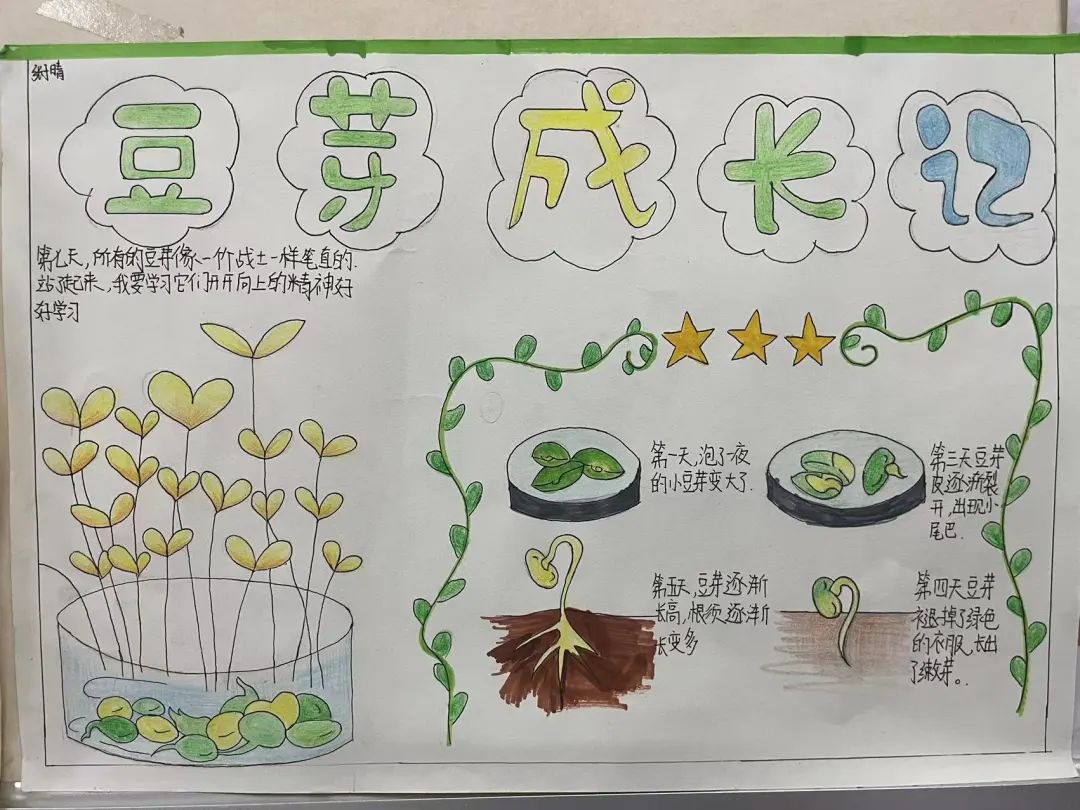 豆芽成长记
第七天,所有的豆芽像一个战士一样笔直的.
站了起来,我要学习它们开开向上的精神好
好学习
第一天,泡了一夜
的小豆芽变大了.
第二天豆芽
皮逐渐裂
开,出现小
尾巴.
第五天,豆芽逐渐
长高,根须逐渐
长变多
第四天豆芽
褪掉了绿色
的衣服,长出
了嫩芽。